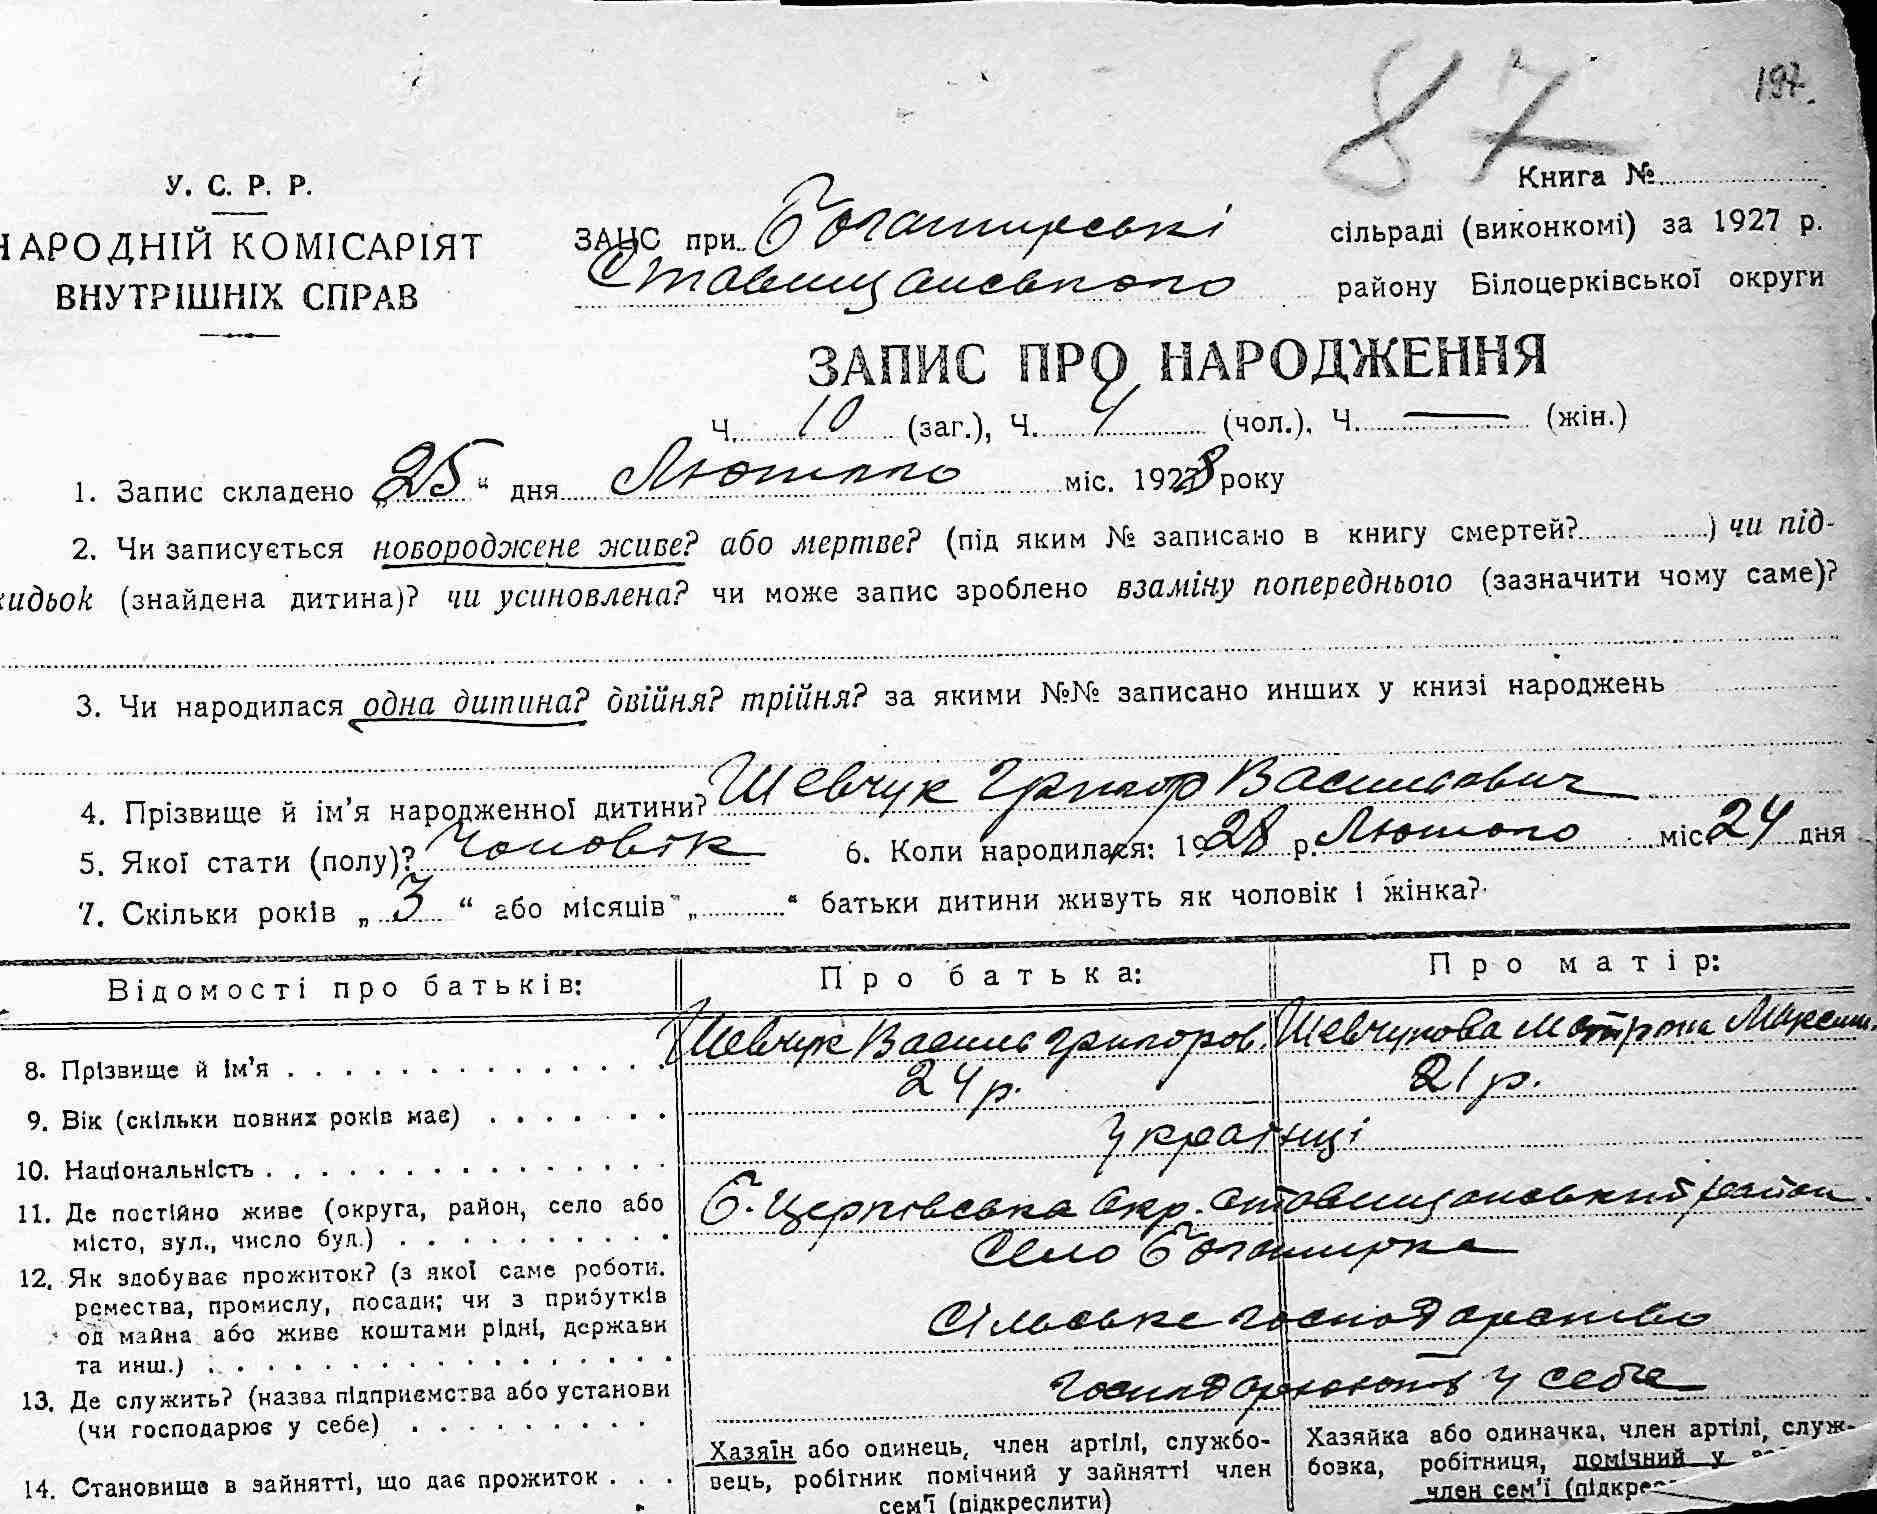 87
197.
У. С. Р. Р.
НАРОДНІЙ КОМІСАРІЯТ
ВНУТРІШНІХ СПРАВ
Книга №
ЗАЦС при Богатирські сільраді (виконкомі) за 1927 р.
Ставищанського району Білоцерківської округи
ЗАПИС ПРО НАРОДЖЕННЯ
Ч. 10 (заг.), Ч. 4 (чол.), Ч. — (жін.)
1. Запис складено „25" дня Лютого міс. 1928 року
2. Чи записується новороджене живе? або мертве? (під яким № записано в книгу смертей? ) чи під-
кидьок (знайдена дитина)? чи усиновлена? чи може запис зроблено взаміну попереднього (зазначити чому саме)?
3. Чи народилася одна дитина? двійня? трійня? за якими №№ записано инших у книзі народжень
4. Прізвище й ім'я народженної дитини? Шевчук Григор Васильович
5. Якої стати (полу)? Чоловік 6. Коли народилася: 1928 р. Лютого міс. 24 дня
7. Скільки років „3" або місяців „ " батьки дитини живуть як чоловік і жінка?
Відомості про батьків: Про батька: Про матір:
8. Прізвище й ім'я Шевчук Василь Григоров. Шевчукова Мотрона Максим.
9. Вік (скільки повних років має) 24 р. 21 р.
10. Національність Українці
11. Де постійно живе (округа, район, село або Б. Церківська Окр. Ставищанський район
місто, вул., число буд.) Село Богатирка
12. Як здобуває прожиток? (з якої саме роботи,
ремества, промислу, посади; чи з прибутків Сільське господарство
од майна або живе коштами рідні, держави
та инш.)
13. Де служить? (назва підприємства або установи Господарюють у себе
(чи господарює у себе)
14. Становище в зайнятті, що дає прожиток
Хазяїн або одинець, член артілі, службо-
вець, робітник помічний у зайнятті член
сем'ї (підкреслити)
Хазяйка або одиначка, член артілі, служ-
бовка, робітниця, помічний у
член сем'ї (підкре